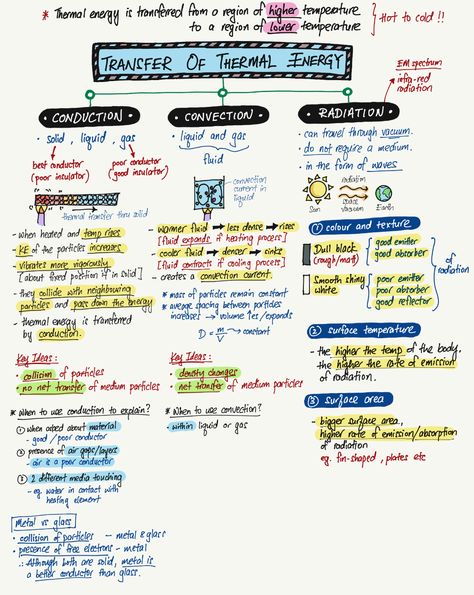 * Thermal energy is transferred from a region of higher temperature
to a region of lower temperature
Hot to cold !!
TRANSFER OF THERMAL ENERGY
EM spectrum
infra-red
radiation
CONDUCTION
• solid, liquid, gas
best conductor
(poor insulator)
poor conductor
(good insulator)
thermal transfer thru solid
- when heated and temp rises
- KE of the particles increases
- vibrates more vigorously
[about fixed position if in solid]
- they collide with neighbouring
particles and pass down the energy
- thermal energy is transferred
by conduction.
Key Ideas:
• collision of particles
• no net transfer of medium particles
* When to use conduction to explain?
① when asked about material
- good / poor conductor
② presence of air gaps/layers
- air is a poor conductor
③ 2 different media touching
- eg. water in contact with
heating element
Metal vs glass
• collision of particles - metal & glass
• presence of free electrons - metal
∴ Although both are solid, metal is
a better conductor than glass.
CONVECTION
• liquid and gas
fluid
convection
current in
liquid
- warmer fluid → less dense → rises
[fluid expands if heating process]
- cooler fluid → denser → sinks
[fluid contracts if cooling process]
- creates a convection current.
* mass of particles remain constant
* average spacing between particles
increases → volume ↑es/expands
D = m/V → constant
Key Ideas:
• density changes
• net transfer of medium particles
* When to use convection?
- within liquid or gas
RADIATION
• can travel through vacuum.
• do not require a medium.
• in the form of waves
Sun
radiation
space
vacuum
Earth
① colour and texture
Dull black
(rough/matt)
good emitter
good absorber
Smooth shiny
white
poor emitter
poor absorber
good reflector
of
radiation
② surface temperature
- the higher the temp of the body,
the higher the rate of emission
of radiation.
③ surface area
- bigger surface area,
higher rate of emission/absorption
of radiation
eg. fin-shaped, plates etc